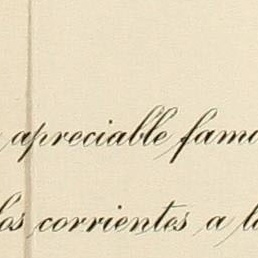 apreciable fam
los corrientes a l